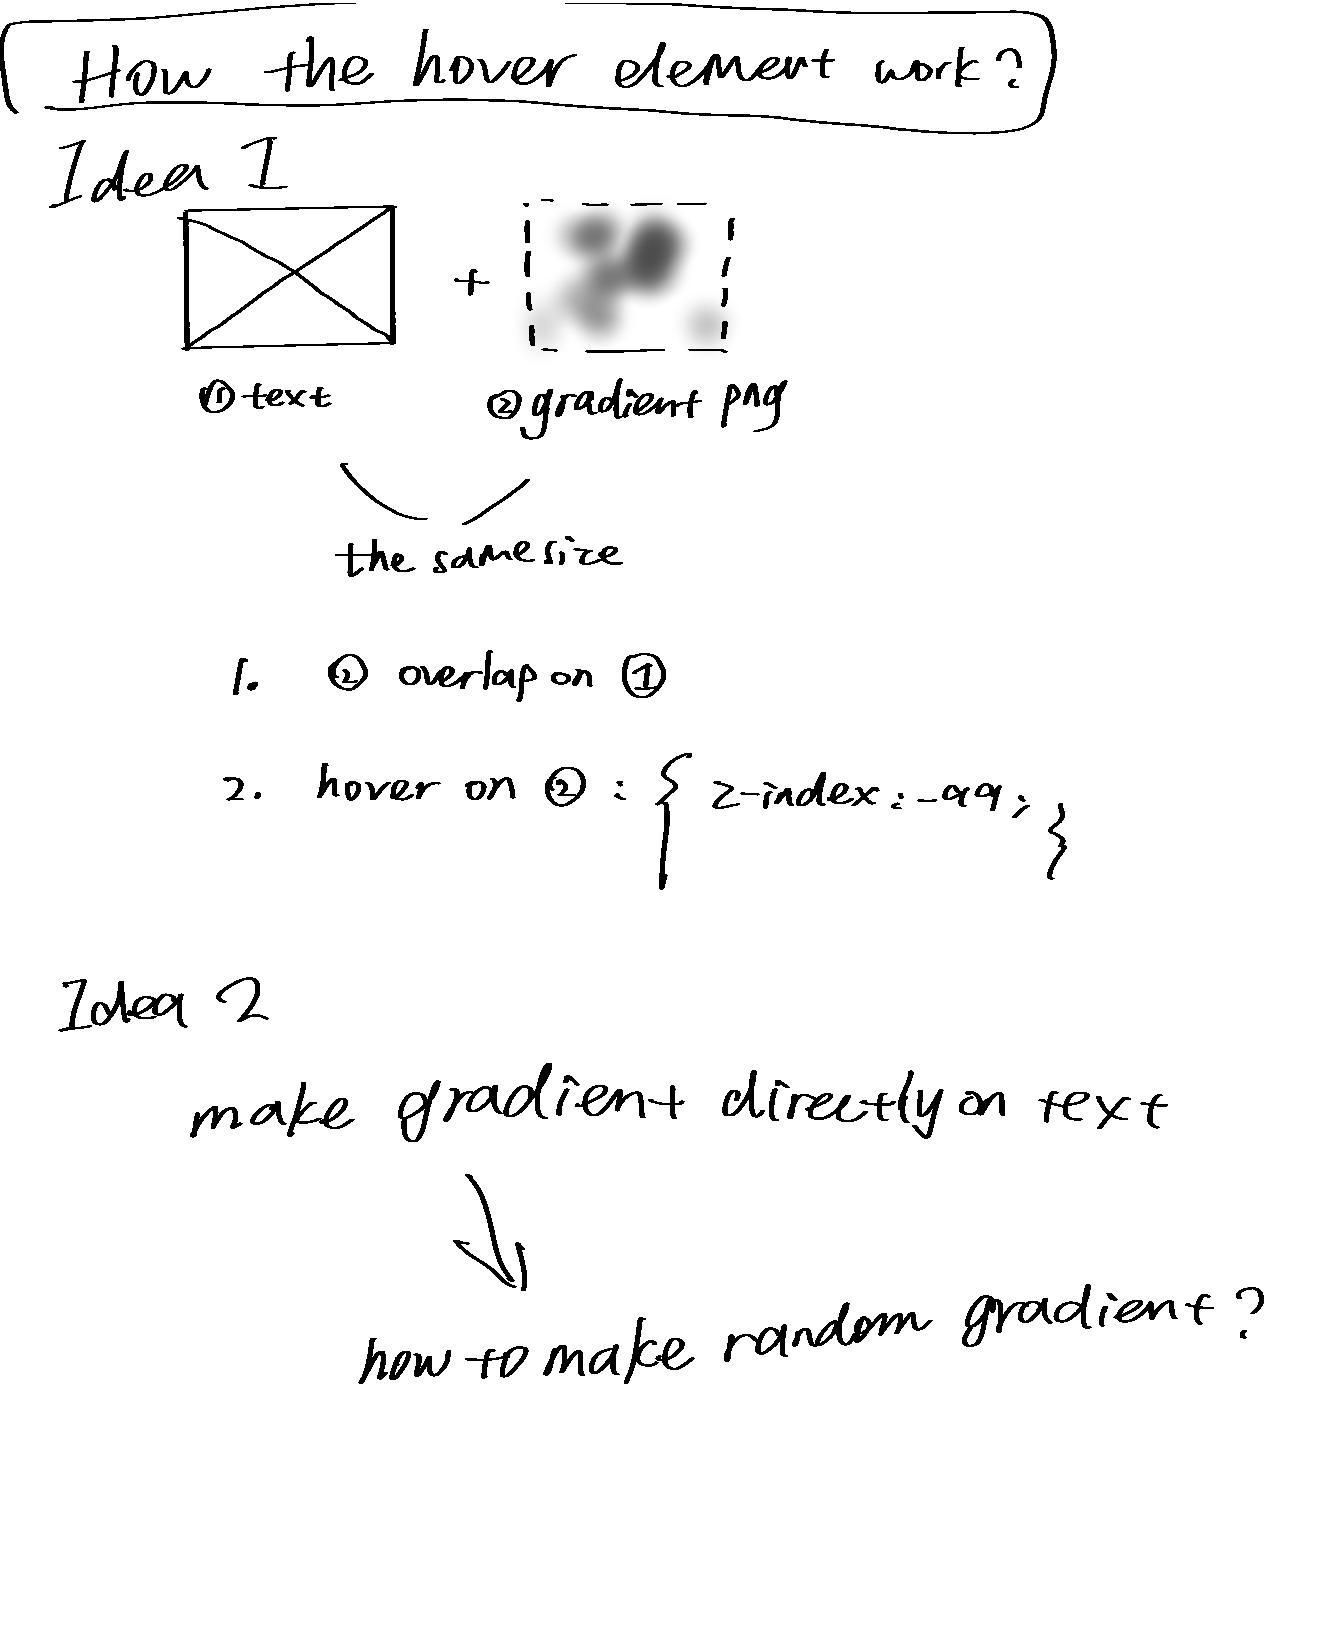 How the hover element work?
Idea 1
+
① text ② gradient png
the same size
1. ② overlap on ①
2. hover on ② : { z-index : -99; }
Idea 2
make gradient directly on text
how to make random gradient?